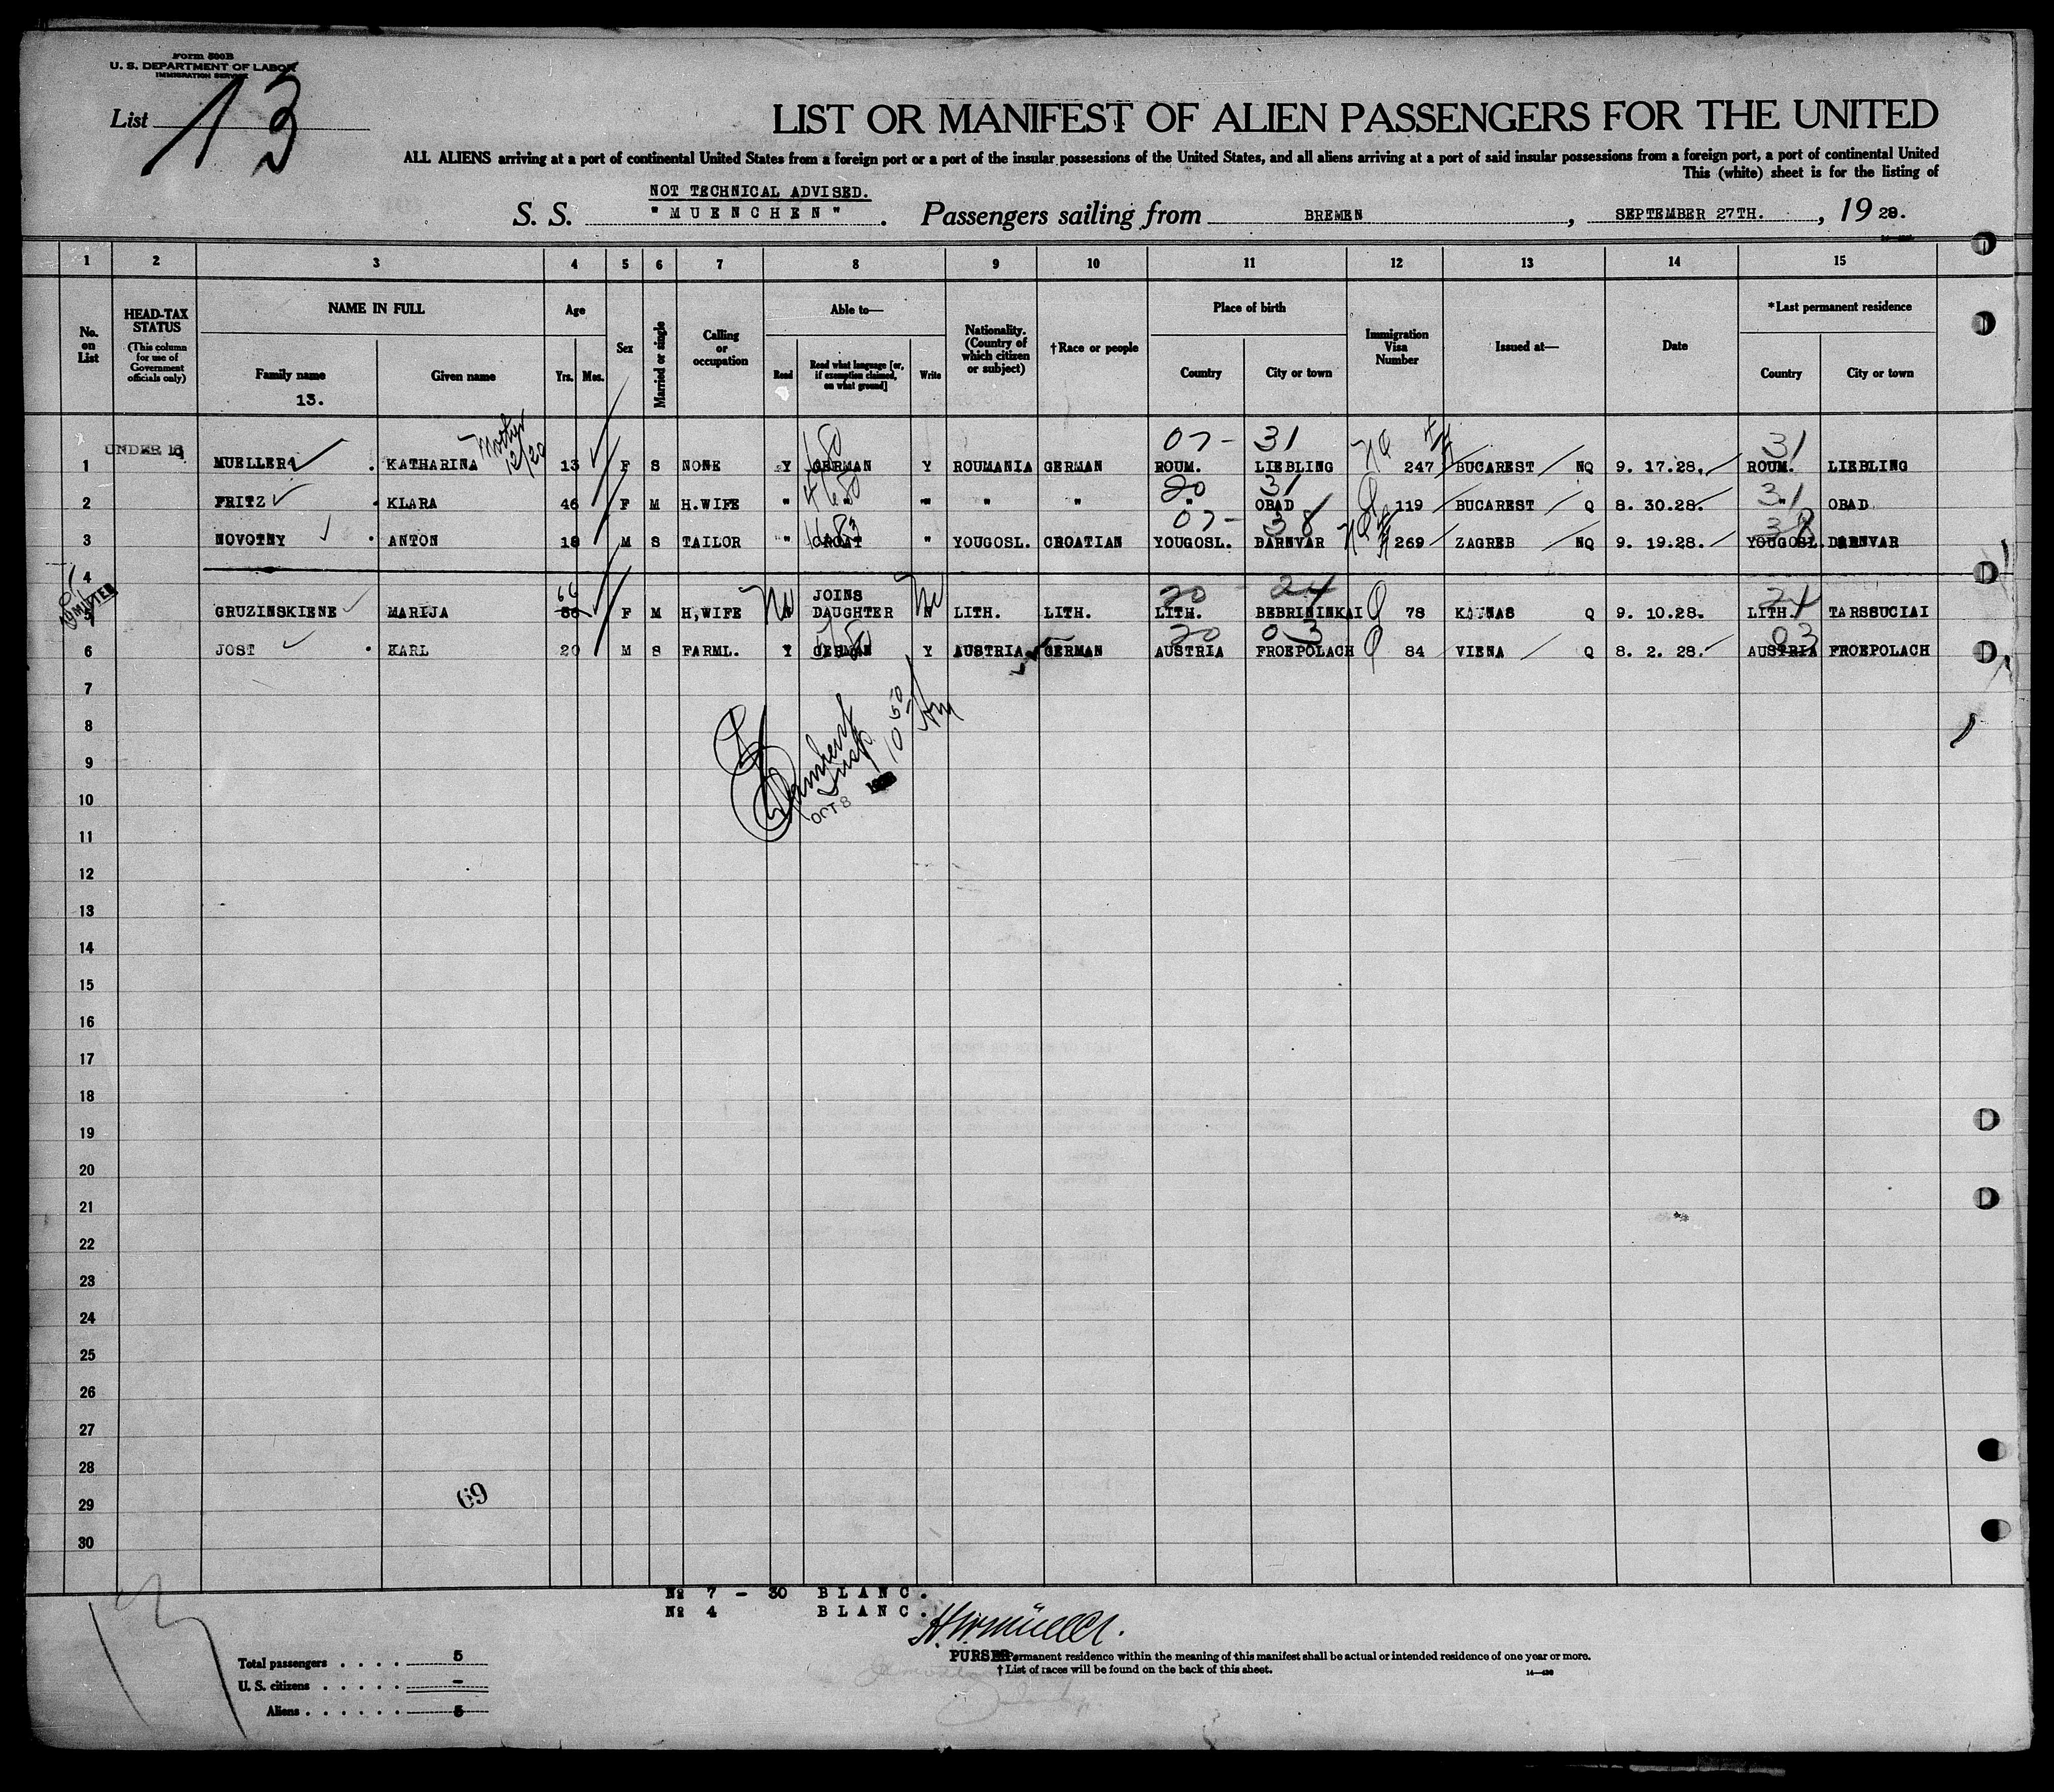 Form 500B
U. S. DEPARTMENT OF LABOR
IMMIGRATION SERVICE
List 13
LIST OR MANIFEST OF ALIEN PASSENGERS FOR THE UNITED
ALL ALIENS arriving at a port of continental United States from a foreign port or a port of the insular possessions of the United States, and all aliens arriving at a port of said insular possessions from a foreign port, a port of continental United
This (white) sheet is for the listing of
NOT TECHNICAL ADVISED.
S. S. "MUENCHEN". Passengers sailing from BREMEN, SEPTEMBER 27TH., 1928.
1 2 3 4 5 6 7 8 9 10 11 12 13 14 15
No. on List
HEAD-TAX STATUS
(This column for use of Government officials only)
NAME IN FULL
Family name
13.
Given name
Age
Yrs. Mos.
Sex
Married or single
Calling or occupation
Able to—
Read
Read what language [or, if exemption claimed, on what ground]
Write
Nationality. (Country of which citizen or subject)
†Race or people
Place of birth
Country
City or town
Immigration Visa Number
Issued at—
Date
*Last permanent residence
Country
City or town
Mother 12/20
07- 31 NQ 31
1 UNDER 16 MUELLER KATHARINA 13 F S NONE Y GERMAN Y ROUMANIA GERMAN ROUM. LIEBLING 247 BUCAREST NQ 9. 17.28. ROUM. LIEBLING
20 31 31
2 FRITZ KLARA 46 F M H.WIFE " " " " " " OBAD Q 119 BUCAREST Q 8. 30.28. " OBAD
07- 38 38
3 NOVOTNY ANTON 18 M S TAILOR " CROAT " YOUGOSL. CROATIAN YOUGOSL. DARNVAR 269 ZAGREB NQ 9. 19.28. YOUGOSL. DARNVAR
4
66 JOINS 20 - 24 24
5 ADMITTED GRUZINSKIENE MARIJA 56 F M H,WIFE No N DAUGHTER N No LITH. LITH. LITH. BEBRININKAI Q 78 KAUNAS Q 9. 10.28. LITH. TARSSUCIAI
20 03 03
6 JOST KARL 20 M S FARML. Y GERMAN Y AUSTRIA GERMAN AUSTRIA FROEPOLACH Q 84 VIENA Q 8. 2. 28. AUSTRIA FROEPOLACH
7
Insp
10 50
OCT 8
8
9
10
11
12
13
14
15
16
17
18
19
20
21
22
23
24
25
26
27
28
29
69
30
№ 7 - 30 BLANC.
№ 4 BLANC.
PURSER
*Permanent residence within the meaning of this manifest shall be actual or intended residence of one year or more.
†List of races will be found on the back of this sheet.
14—430
Total passengers . . . . 5
U. S. citizens . . . . . -
Aliens . . . . . . 5